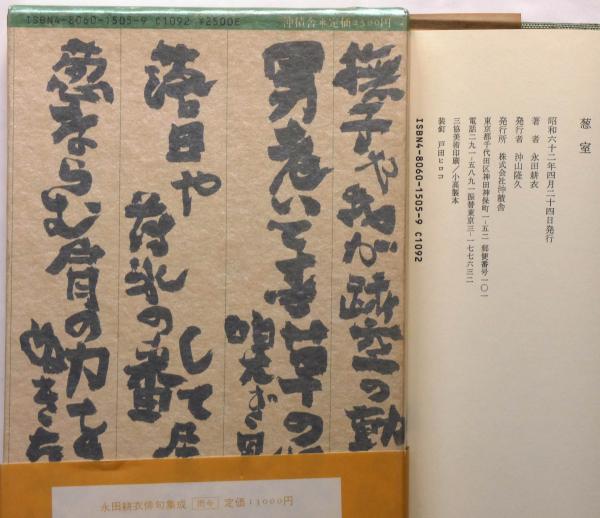 ISBN4-8060-1505-9 C1092 ¥2500E
沖積舎 定価2500円
撫子や我が跡空の動
男老いて
草の
落日や
の番
して
葱ならむ肩の力を
ぬきち
永田耕衣俳句集成 而今 定価13000円
葱室
昭和六十二年四月二十四日発行
著者 永田耕衣
発行者 沖山隆久
発行所 株式会社沖積舎
東京都千代田区神田神保町一-五二 郵便番号一〇一
電話二九一-五八九一 振替東京三-一七七六三二
三協美術印刷/小高製本
装釘 戸田ヒロコ
ISBN4-8060-1505-9 C1092